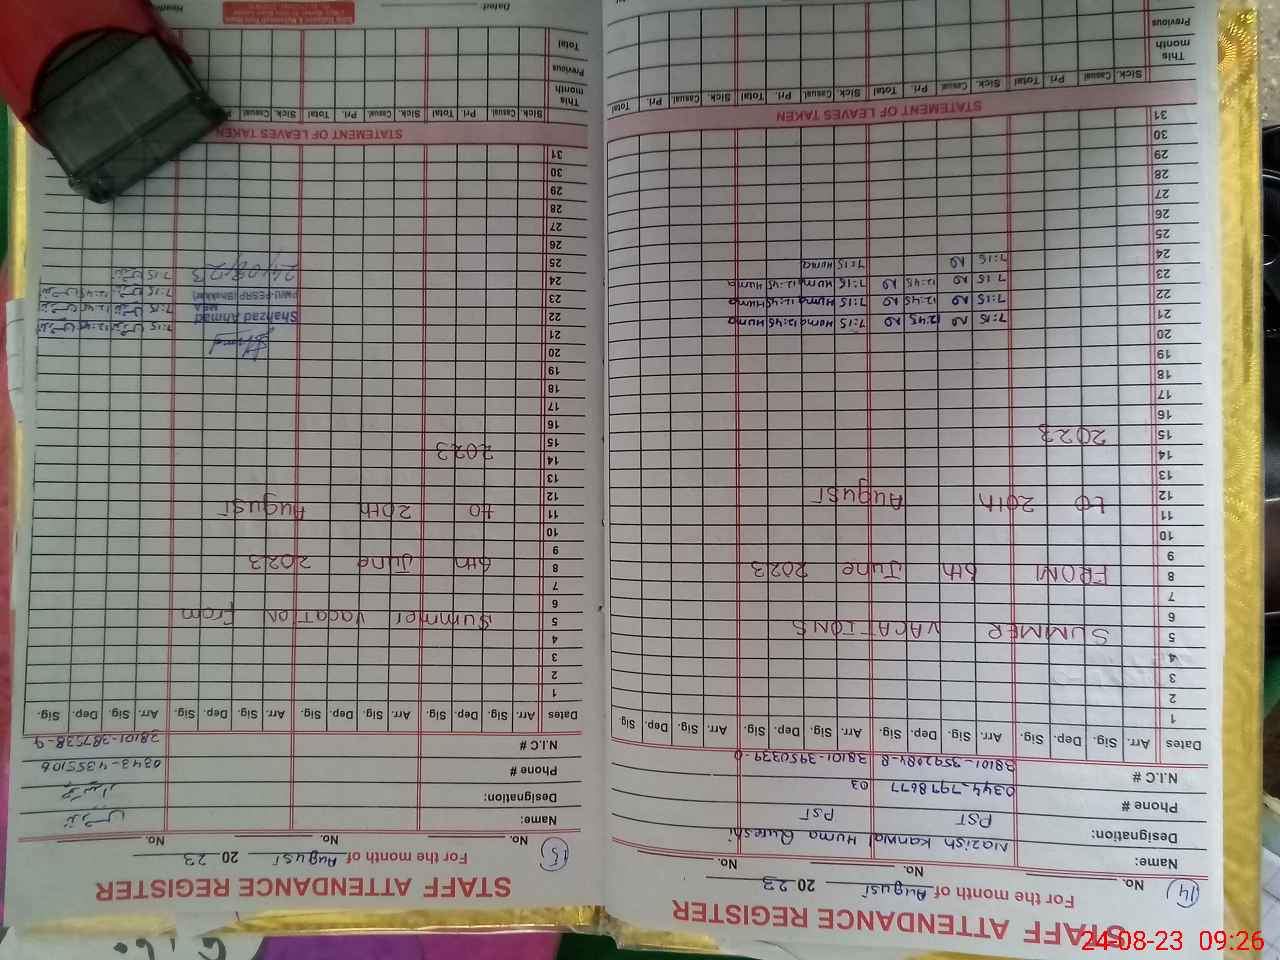 STAFF ATTENDANCE REGISTER
14
For the month of August 2023
No. No. No. No.
Name: Nazish Kanwal Huma Qureshi
Designation: PST PST
Phone # 0344-7978677 03
N.I.C # 38101-3592084-8 38101-3950339-0
Dates Arr. Sig. Dep. Sig. Arr. Sig. Dep. Sig. Arr. Sig. Dep. Sig. Arr. Sig. Dep. Sig.
1
2
3
4
5 SUMMER VACATIONS
6
7
8 FROM 6th June 2023
9
10
11
12 to 20th August
13
14
15 2023
16
17
18
19
20
21 7:15 12:45 7:15 Huma 12:45 Huma
22 7:15 12:45 7:15 Huma 12:45 Huma
23 7:15 12:45 7:15 Huma 12:45 Huma
24 7:15 7:15 Huma
25
26
27
28
29
30
31
STATEMENT OF LEAVES TAKEN
Sick. Casual. Pri. Total Sick. Casual. Pri. Total Sick. Casual. Pri. Total Sick. Casual. Pri. Total
This month
Previous
STAFF ATTENDANCE REGISTER
15
For the month of August 2023
No. No. No.
Name: نرگس
Designation:
Phone # 0343-4355106
N.I.C # 38101-387538-9
Dates Arr. Sig. Dep. Sig. Arr. Sig. Dep. Sig. Arr. Sig. Dep. Sig. Arr. Sig. Dep. Sig.
1
2
3
4
5 Summer Vacation From
6
7
8 6th June 2023
9
10
11 to 20th August
12
13
14 2023
15
16
17
18
19
20
21 7:15 نرگس 12:45 نرگس
22 Shahzad Ahmad 7:15 نرگس 12:45 نرگس
MEA
23 PMIU-PESRP (Bhakkar) 7:15 نرگس 12:45 نرگس
24 24/08/23 7:15 نرگس
25
26
27
28
29
30
31
STATEMENT OF LEAVES TAKEN
Sick. Casual. Pri. Total Sick. Casual. Pri. Total Sick. Casual.
This month
Previous
Total
Dated:
24-08-23 09:26